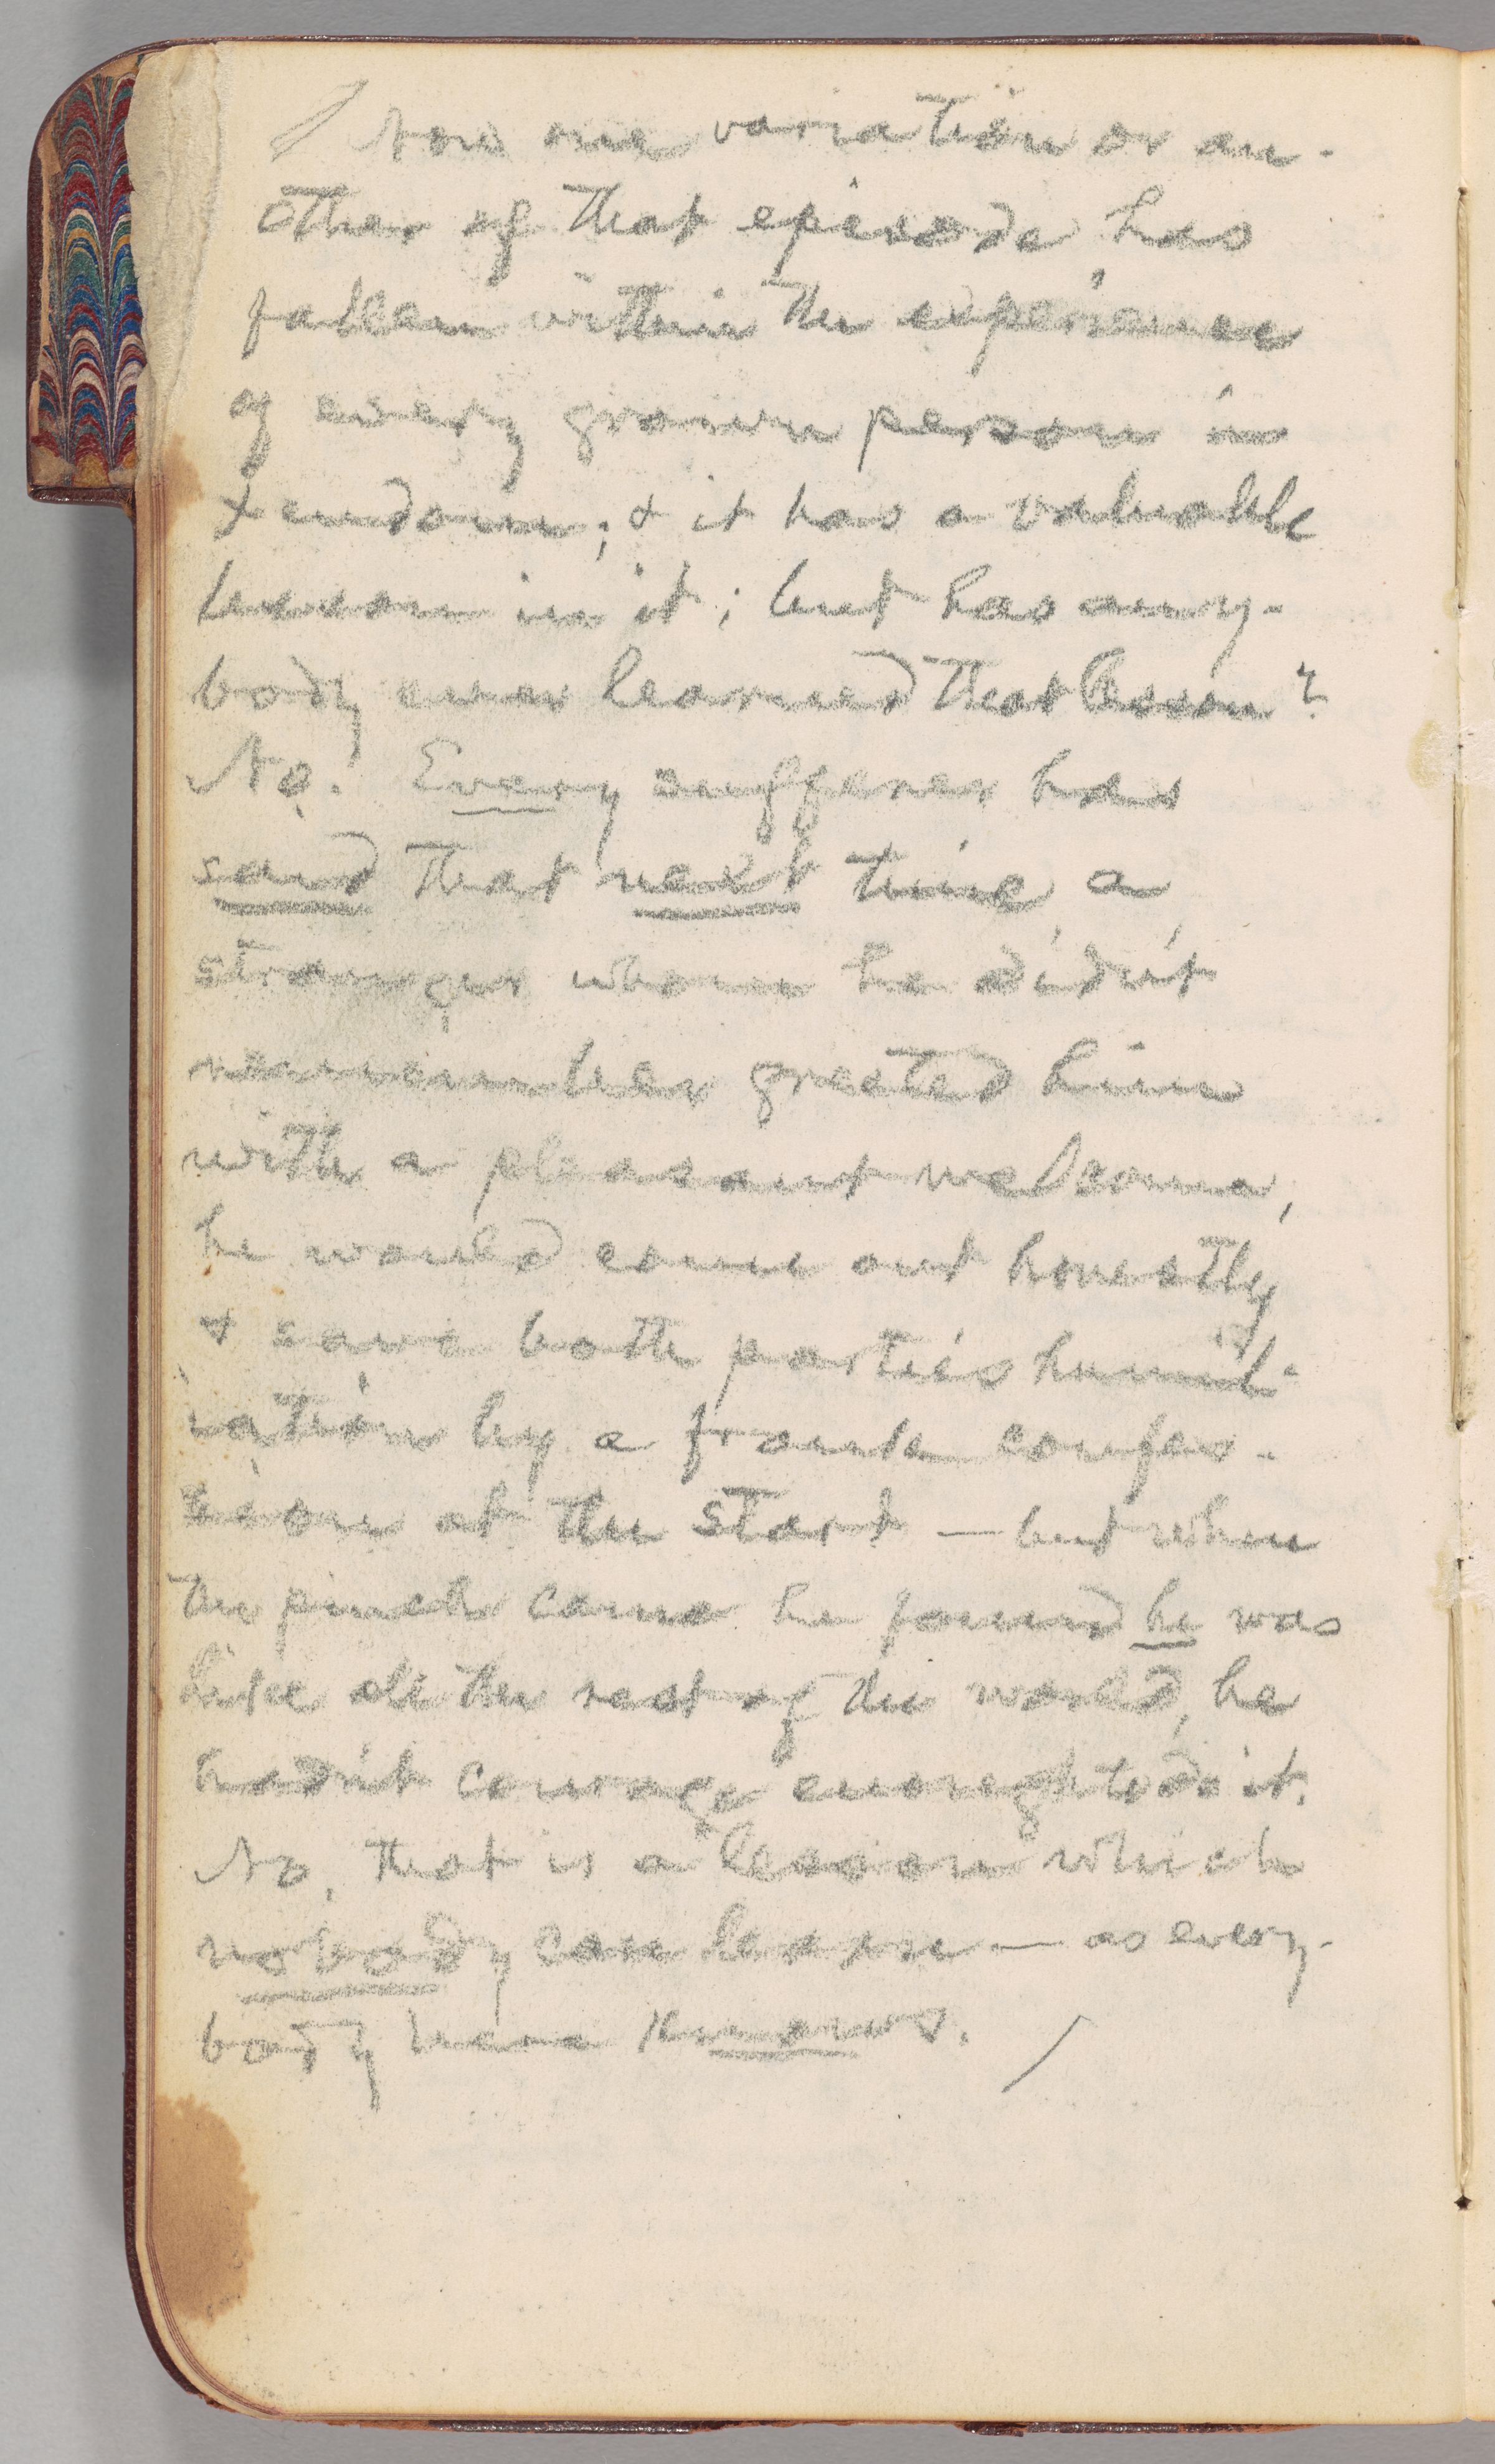 Now one variation or an-
other of that episode has
fallen within the experience
of every grown person in
Xendom; & it has a valuable
lesson in it; but has any-
body ever learned that lesson?
No. Every sufferer has
said that next time a
stranger whom he didn't
remember greeted him
with a pleasant welcome,
he would come out honestly
& save both parties humil-
iation by a frank confes-
sion at the start — but when
the pinch came he found he was
like all the rest of the world, he
hadn't courage enough to do it.
No, that is a lesson which
nobody can learn — as every-
body here knows.